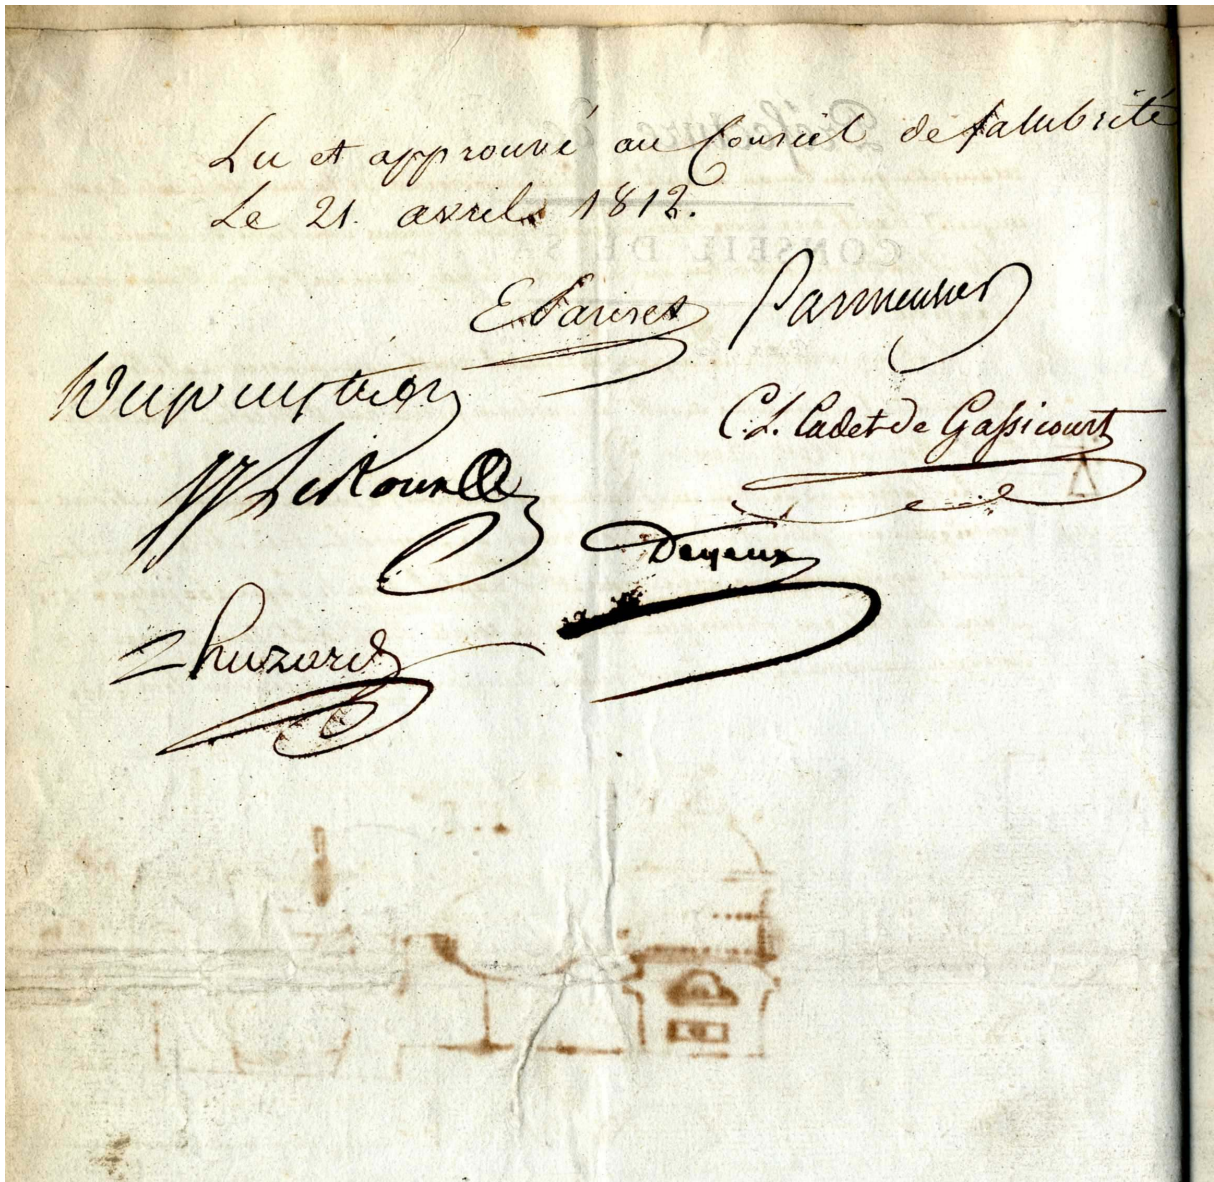 Lu et approuvé au Conseil de salubrité
Le 21. avril 1812.
E Pariset Parmentier
Dupuytren
C. L. Cadet de Gassicourt
Leroux
Deyeux
huzard
CONSEIL DE SAL